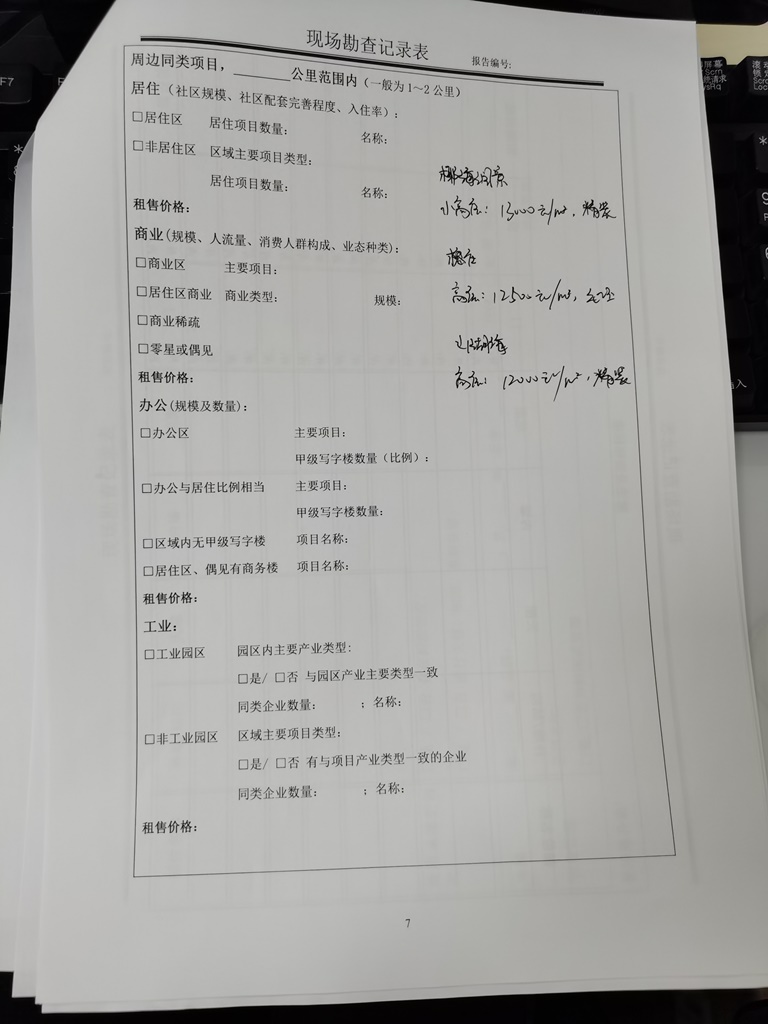 现场勘查记录表
报告编号:
周边同类项目，______公里范围内（一般为1～2公里）
居住（社区规模、社区配套完善程度、入住率）：
□居住区 居住项目数量: 名称:
□非居住区 区域主要项目类型:
居住项目数量: 名称:
租售价格:
小高层: 13000元/m², 精装
商业(规模、人流量、消费人群构成、业态种类):
□商业区 主要项目:
□居住区商业 商业类型: 规模:
高层: 12500元/m², 毛坯
□商业稀疏
□零星或偶见
租售价格:
高层: 12000元/m², 精装
办公(规模及数量):
□办公区 主要项目:
甲级写字楼数量（比例）:
□办公与居住比例相当 主要项目:
甲级写字楼数量:
□区域内无甲级写字楼 项目名称:
□居住区、偶见有商务楼 项目名称:
租售价格:
工业:
□工业园区 园区内主要产业类型:
□是/ □否 与园区产业主要类型一致
同类企业数量: ；名称:
□非工业园区 区域主要项目类型:
□是/ □否 有与项目产业类型一致的企业
同类企业数量: ；名称:
租售价格:
7